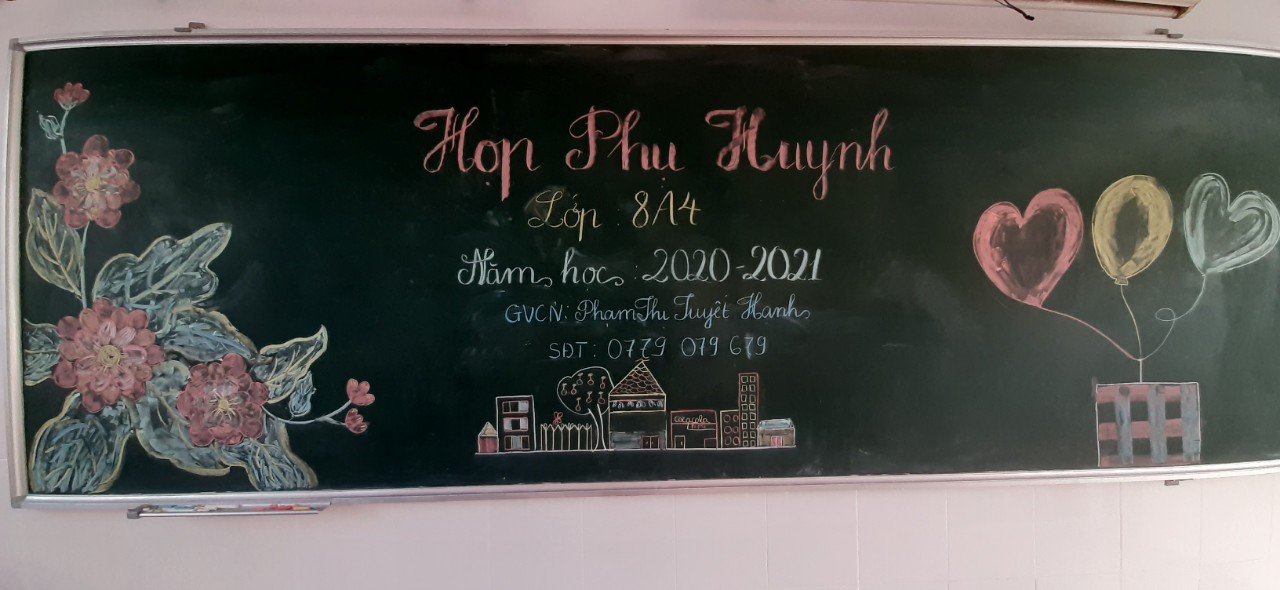 Họp Phụ Huynh
Lớp : 8A4
Năm học : 2020-2021
GVCN: Phạm Thị Tuyết Hạnh
SĐT : 0779 079 679